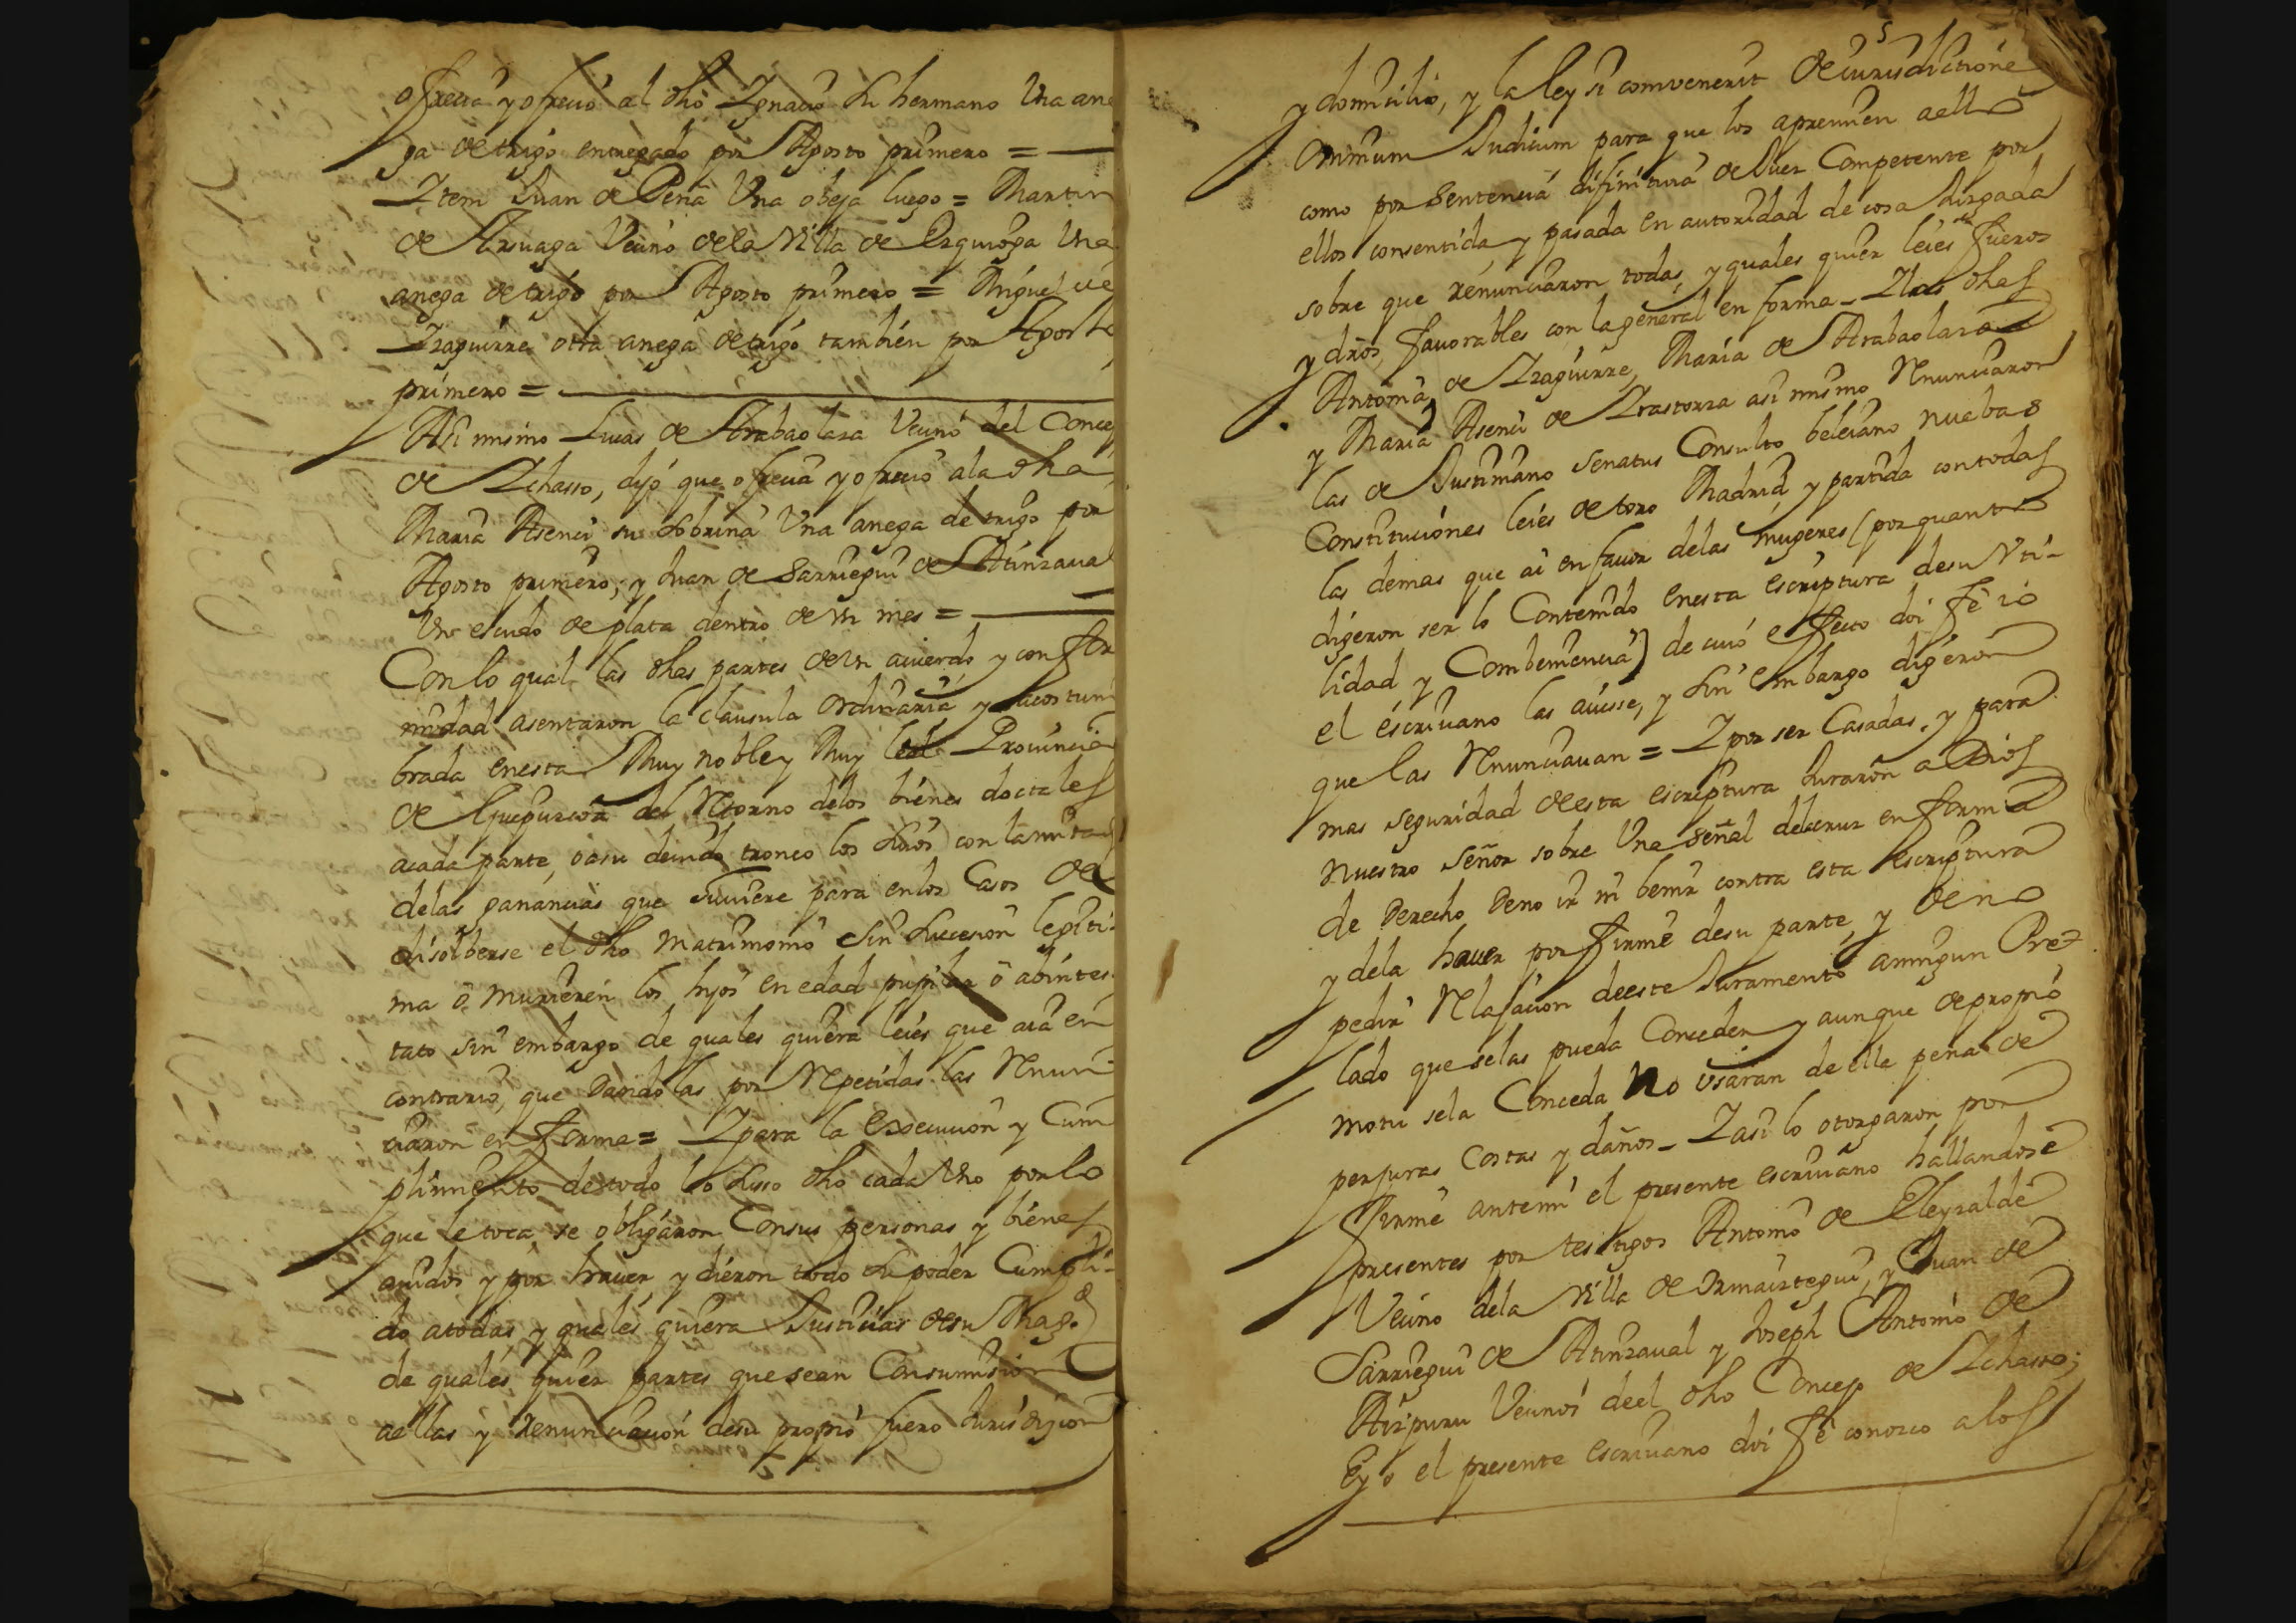 ofrecia y ofrecio al dho Ygnacio su hermano Una ane
ga de trigo entregado por Agosto primero =
Ytem Juan de Peña Una obeja luego = Martin
de Arsuaga Vecino de la Villa de Ezquioga Una
anega de trigo por Agosto primero = Miguel de
Yzaguirre otra anega de trigo tambien por Agosto
primero =
Asi mismo Lucas de Arabaolaza Vecino del Concej
de Ychasso, dijo que ofrecia y ofrecio ala dha
Maria Asencia su sobrina Una anega de trigo por
Agosto primero; y Juan de Sarriegui de Atinzaval
Un escudo de plata dentro de Un mes =
Con lo qual las dhas partes de Un acuerdo y confor
midad asentaron la clausula Ordinaria y acostum
brada en esta Muy noble y Muy leal Provincia
de Guipuzcoa del Retorno de los bienes doctales
acada parte, o a su devido tronco los Suios con la mitad
de las ganancias que huviere para en los Casos de
disolberse el dho Matrimonio Sin Succesion legiti-
ma ó Murieren los hijos en edad pupilar ó abintes-
tato sin embargo de quales quiera leies que aia en
contrario, que Dandolas por Repetidas las Renun
ciaron en forma = Y para la Exsecucion y Cum
plimiento de todo lo Suso dho cada Uno por lo
que le toca se obligaron Con sus personas y bienes
avidos y por haver, y dieron todo Su poder Cumpli-
do atodas y quales quiera Justicias de su Magd
de quales quier partes que sean Con sumision
aellas y Renunciacion de su propio fuero Jurisdizion
5
y domicilio, y la ley si comvenerit de iurisdictione
Omnium Judicum para que los apremien aello
como por Sentencia difinitiva de Juez Competente por
ellos consentida y pasada en autoridad de cosa Juzgada
sobre que renunciaron todas, y quales quier leies fueros
y dros favorables con la general en forma - Y las dhas
Antonia de Yzaguirre, Maria de Arabaolaza
y Maria Asencia de Yrastorza asi mismo Renunciaron
las de Justiniano Senatus Consulto beleiano nuebas
Constituciones leies de toro Madrid y partida con todas
las demas que ai en favor de las mugeres (por quanto
digeron ser lo Contenido en esta escriptura de su Uti-
lidad y Combeniencia) de cuio efecto doi fe io
el escrivano las avisse, y Sin embargo digeron
que las Renunciavan = Y por ser Casadas, y para
mas seguridad de esta escriptura Juraron a Dios
Nuestro Señor sobre Una Señal de la cruz en forma
de Derecho De no ir ni benir contra esta escriptura
y de la haver por firme de su parte, y de no
pedir Relajacion de este Juramento aningun Pre-
lado que se las pueda Conceder y aunque de propio
motu se la Conceda No Usaran de ella pena de
perjuras Costas y daños - Y asi lo otorgaron por
firme ante mi el presente escrivano hallandose
presentes por testigos Antonio de Eleyzalde
Vecino de la Villa de Ormaiztegui, y Juan de
Sarriegui de Atinzaval y Joseph Antonio de
Aizpuru Vecinos de el dho Concejo de Ychasso;
E yo el presente escrivano doi fe conozco alos